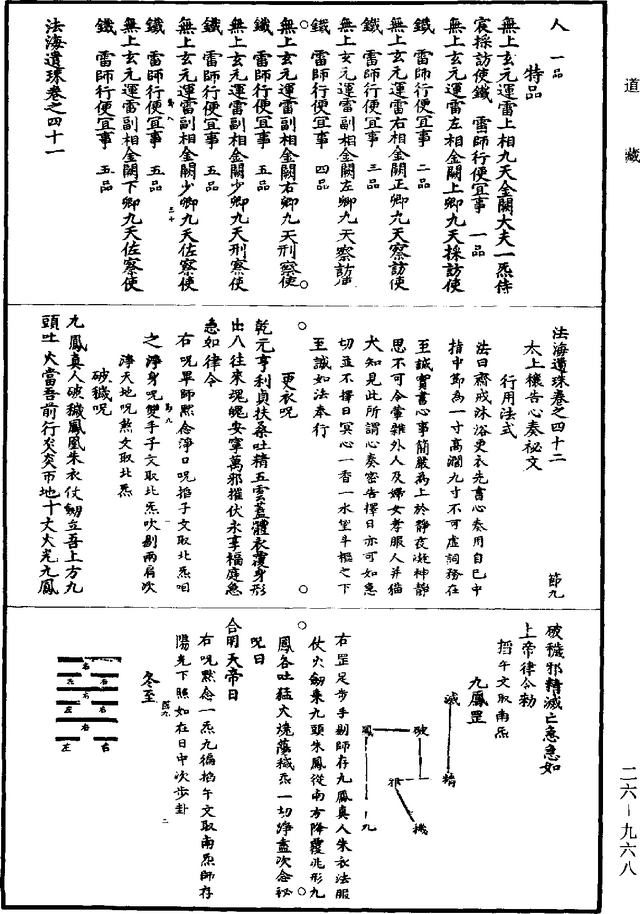 道藏
人　一品
特品
無上玄元運雷上相九天金闕大夫一炁侍
宸採訪使鐵　雷師行便宜事　一品
無上玄元運雷左相金闕上卿九天採訪使
鐵　雷師行便宜事　二品
無上玄元運雷右相金闕正卿九天察訪使
鐵　雷師行便宜事　三品
無上玄元運雷副相金闕左卿九天察訪使
鐵　雷師行便宜事　四品
無上玄元運雷副相金闕右卿九天刑察使
鐵　雷師行便宜事　五品
無上玄元運雷副相金闕少卿九天刑察使
鐵　雷師行便宜事　五品
無上玄元運雷副相金闕少卿九天佐察使
鐵　雷師行便宜事　五品
無上玄元運雷副相金闕下卿九天佐察使
鐵　雷師行便宜事　五品
法海遺珠卷之四十一
法海遺珠卷之四十二　節九
太上攘告心奏祕文
行用法式
法曰齋戒沐浴更衣先書心奏用自己中
指中節為一寸高濶九寸不可虛詞務在
至誠實書心事簡嚴為上於靜夜凝神靜
思不可令葷雜外人及婦女孝服人并猫
犬知見此所謂心奏密告擇日亦可如急
切並不擇日冥心一香一水望斗樞之下
至誠如法奉行
更衣呪
乾元亨利貞扶桑吐精五雲蓋體衣覆身形
出入往來魂魄安寧萬邪摧伏永享福庭急
急如律令
右呪畢師默念淨口呪掐子文取北炁咽
之淨身呪雙手子文取北炁吹剔兩肩次
淨天地呪煞文取北炁
破穢呪
九鳳真人破穢鳳凰朱衣仗劒立吾上方九
頭吐火當吾前行炎炎帀地十丈火光九鳳
破穢邪精滅亡急急如
上帝律令勑
掐午文取南炁
九鳳罡
滅
精
破
邪
穢
鳳
九
右罡足步手剔師存九鳳真人朱衣法服
仗火劒乘九頭朱鳳從南方降覆兆形九
鳳各吐猛火燒蕩穢炁一切淨盡次念祕
呪曰
合明天帝日
右呪默念一炁九徧掐午文取南炁師存
陽光下照如在日中次步卦
冬至
右
右
左
右
左
右
左
二六－九六八